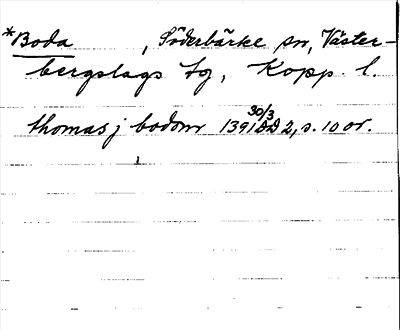 *Boda, Söderbärke sn, Väster-
bergslags tg, Kopp. l.
thomas j bodom 1391 30/3 DD 2, s. 10 or.